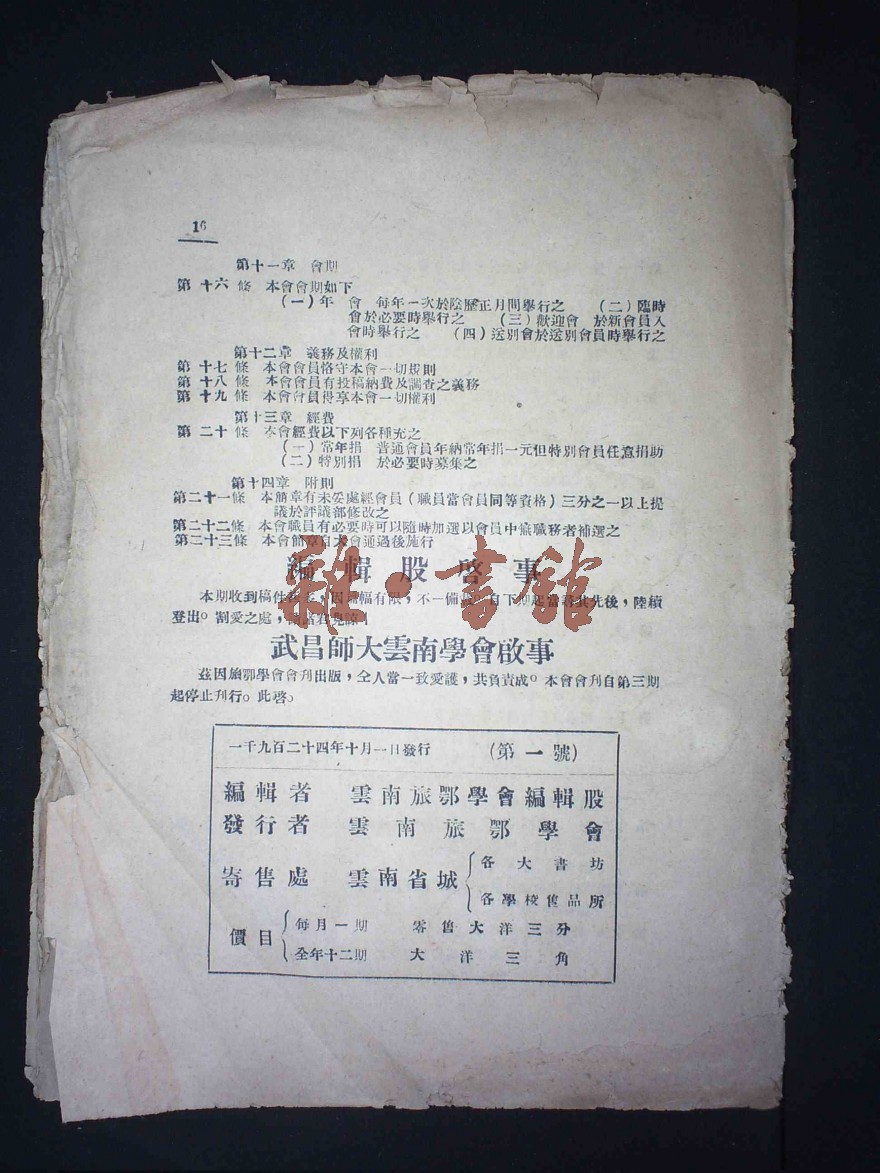 16
第十一章 會期
第十六條 本會會期如下
(一)年 會 每年一次於陰歷正月間舉行之 (二)臨時
會於必要時舉行之 (三)歡迎會 於新會員入
會時舉行之 (四)送別會於送別會員時舉行之
第十二章 義務及權利
第十七條 本會會員恪守本會一切規則
第十八條 本會會員有投稿納費及調查之義務
第十九條 本會會員得享本會一切權利
第十三章 經費
第二十條 本會經費以下列各種充之
(一)常年捐 普通會員年納常年捐一元但特別會員任意捐助
(二)特別捐 於必要時募集之
第十四章 附則
第二十一條 本簡章有未妥處經會員(職員當會員同等資格)三分之一以上提
議於評議部修改之
第二十二條 本會職員有必要時可以隨時加選以會員中無職務者補選之
第二十三條 本會簡章自大會通過後施行
編輯股啓事
本期收到稿件 因 幅有限,不一備 自下期起當 其先後,陸續
登出。割愛之處,
武昌師大雲南學會啟事
茲因旅鄂學會會刊出版,仝人當一致愛護,共負責成。本會會刊自第三期
起停止刊行。此啓。
一千九百二十四年十月一日發行 (第一號)
編輯者 雲南旅鄂學會編輯股
發行者 雲南旅鄂學會
寄售處 雲南省城 各大書坊
各學校售品所
價目 每月一期 零售大洋三分
全年十二期 大洋三角
雜·書館